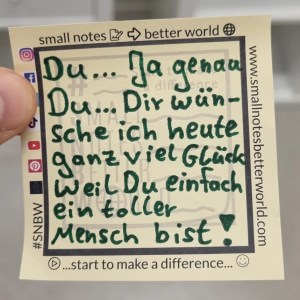 small notes better world
Du... Ja genau
Du... Dir wün-
sche ich heute
ganz viel Glück
weil Du einfach
ein toller
Mensch bist!
...start to make a difference...
www.smallnotesbetterworld.com
#SNBW